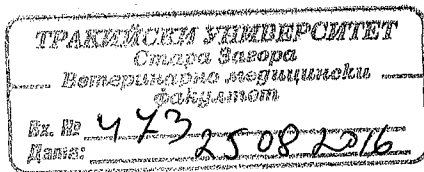 ТРАКИЙСКИ УНИВЕРСИТЕТ
Стара Загора
Ветеринарно медицински
факултет
Вх. № 473
Дата: 25 08 2016